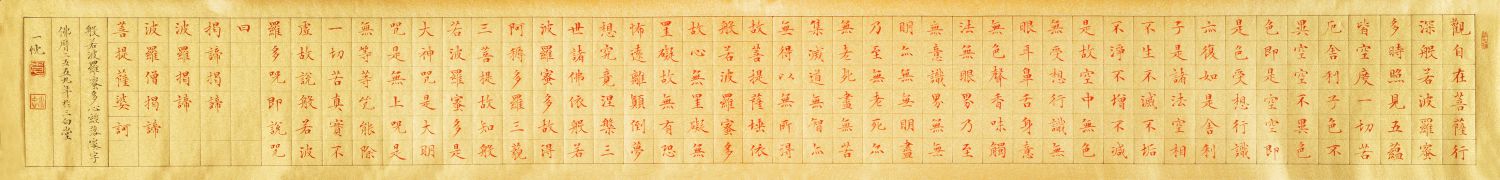 觀自在菩薩行
深般若波羅蜜
多時照見五蘊
皆空度一切苦
厄舍利子色不
異空空不異色
色即是空空即
是色受想行識
亦復如是舍利
子是諸法空相
不生不滅不垢
不淨不增不減
是故空中無色
無受想行識無
眼耳鼻舌身意
無色聲香味觸
法無眼界乃至
無意識界無無
明亦無無明盡
乃至無老死亦
無老死盡無苦
集滅道無智亦
無得以無所得
故菩提薩埵依
般若波羅蜜多
故心無罣礙無
罣礙故無有恐
怖遠離顛倒夢
想究竟涅槃三
世諸佛依般若
波羅蜜多故得
阿耨多羅三藐
三菩提故知般
若波羅蜜多是
大神咒是大明
咒是無上咒是
無等等咒能除
一切苦真實不
虛故說般若波
羅多咒即說咒
曰
揭諦揭諦
波羅揭諦
波羅僧揭諦
菩提薩婆訶
般若波羅蜜多心經落蜜字
佛曆二五五九年於三白堂
一忱